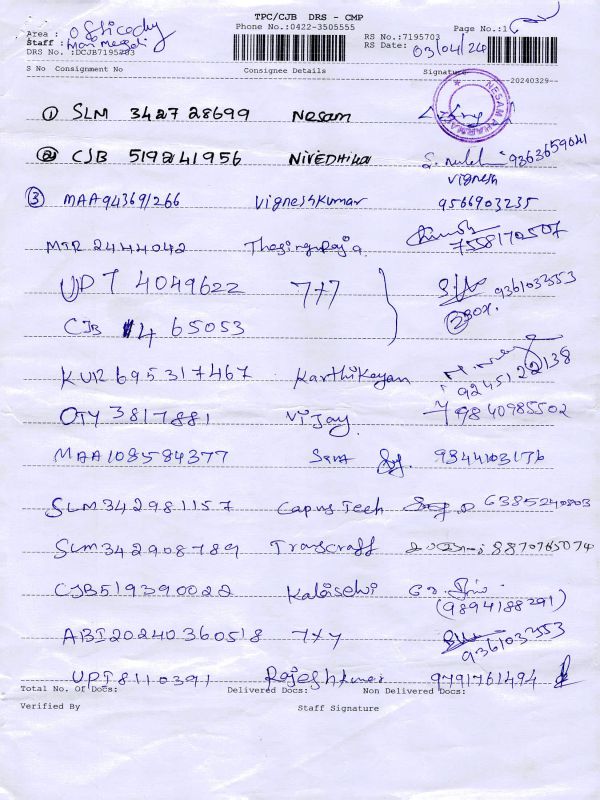 TPC/CJB DRS - CMP
Phone No.:0422-3505555
Page No.:1
Area :
Staff :
DRS No. :DCJB7195703
RS No.:7195703
RS Date: 03/04/24
S No Consignment No Consignee Details Signature
20240329--
NESAM PHARMA
① SLM 342728699 Nesam
② CJB 519241956 NIVEDHIKA 9363659041
Vignesh
③ MAA943691266 Vigneshkumar 9566903235
MTR 2444042 7558172507
UPT 4049622 7x7 9361033553
CJB 465053
KUR695317467 Karthikeyan 9245122138
OTY 3817881 Vijay 9840985502
MAA108584377 Siva 9344103176
SLM342981157 Capus Tech 6385240803
SLM342908789 Transcraff 8870765074
CJB519390022 Kalaiselvi
(9894188291)
ABI20240360518 7xy 9361033553
UPT8110391 Rajeshkumar 9791761494
Total No. Of Docs: Delivered Docs: Non Delivered Docs:
Verified By Staff Signature